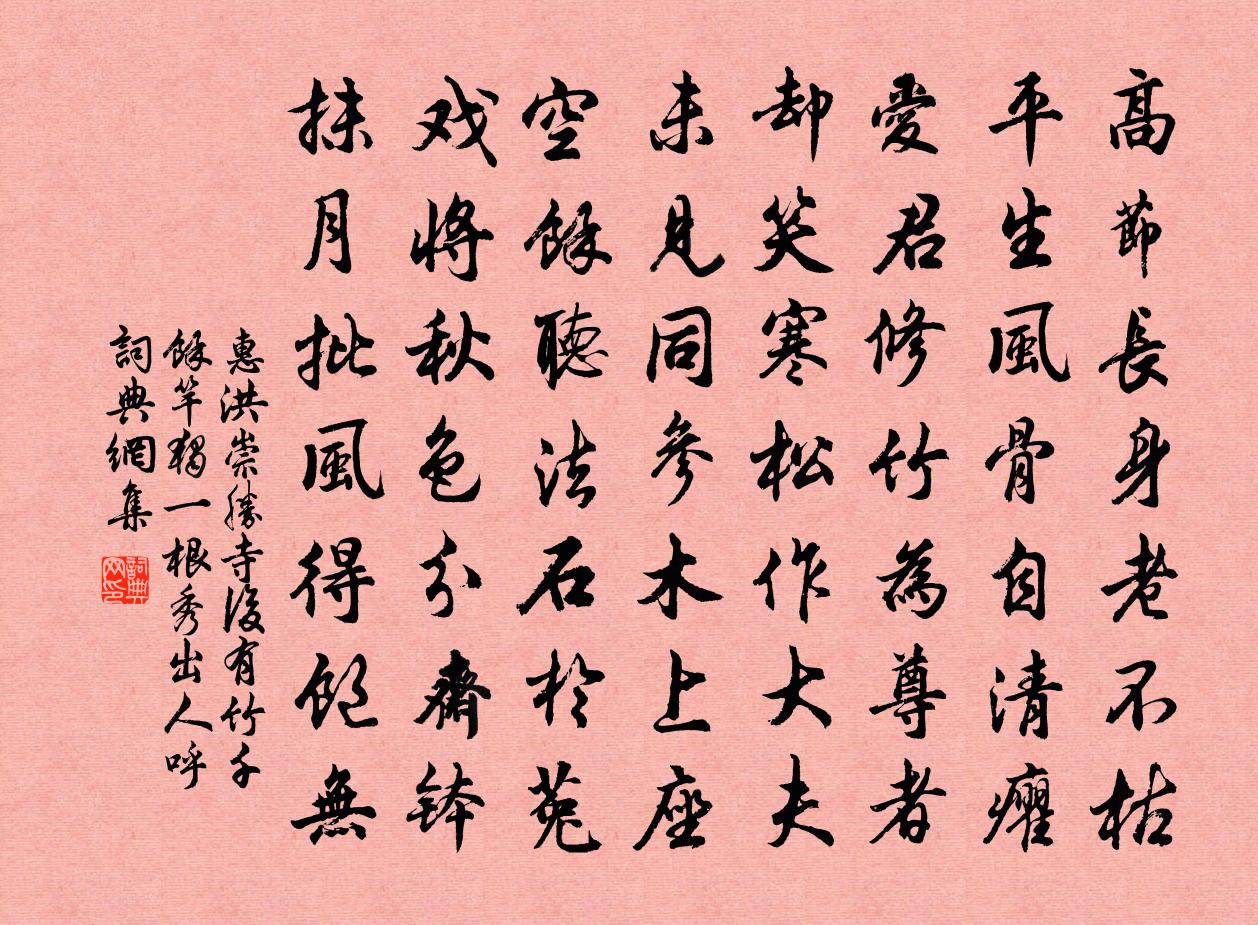 高節長身老不枯
平生風骨自清癯
愛君修竹為尊者
却笑寒松作大夫
未見同參木上座
空餘聽法石於菟
戏將秋色分齋鉢
抹月批風得飽無
惠洪崇勝寺後有竹千
餘竿獨一根秀出人呼
詞典網集
詞典网印